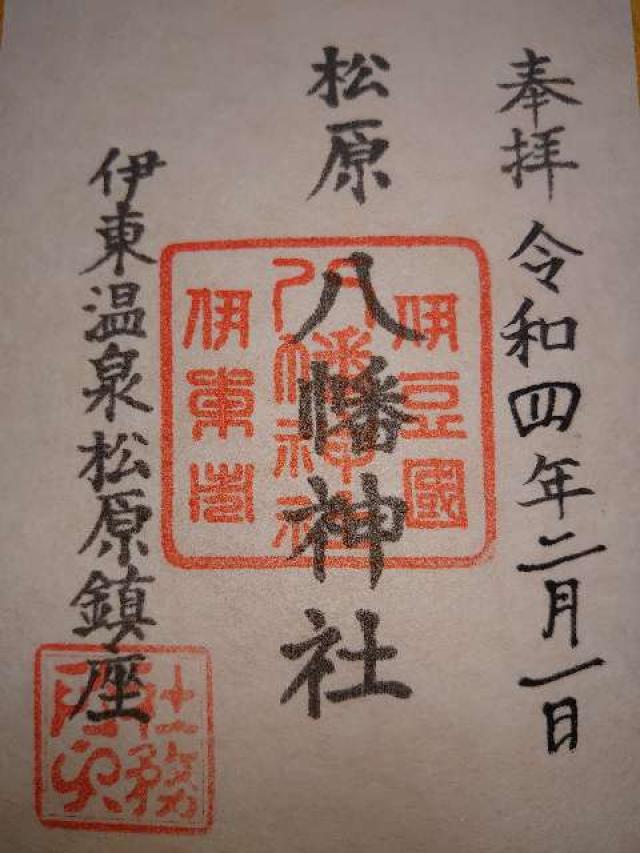 奉拝 令和四年二月一日
松原 八幡神社
伊豆國
八幡神社
伊東市
伊東温泉松原鎮座
社務